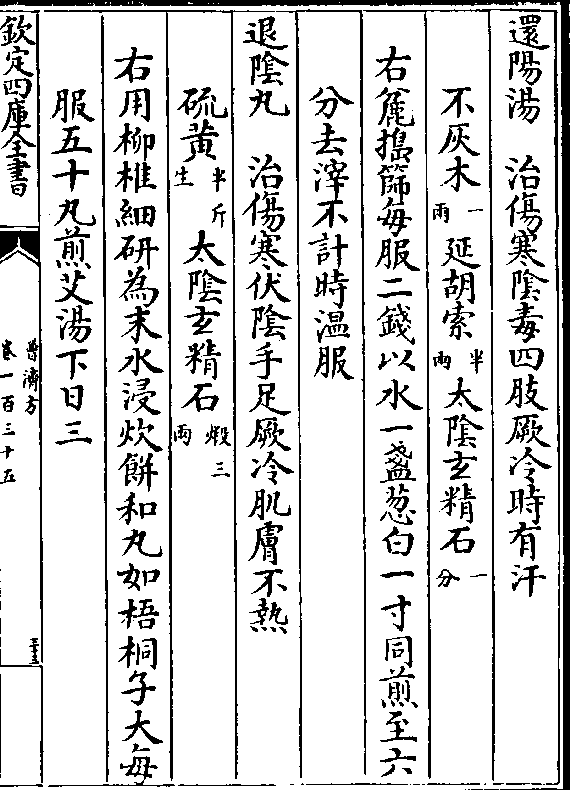 還陽湯　治傷寒陰毒四肢厥冷時有汗
不灰木一兩　延胡索半兩　太陰玄精石一分
右麄搗篩每服二錢以水一盞葱白一寸同煎至六
分去滓不計時温服
退陰丸　治傷寒伏陰手足厥冷肌膚不熱
硫黄半斤生　太陰玄精石煅三兩
右用柳椎細研為末水浸炊餅和丸如梧桐子大每
服五十丸煎艾湯下日三
欽定四庫全書
普濟方
卷一百三十五